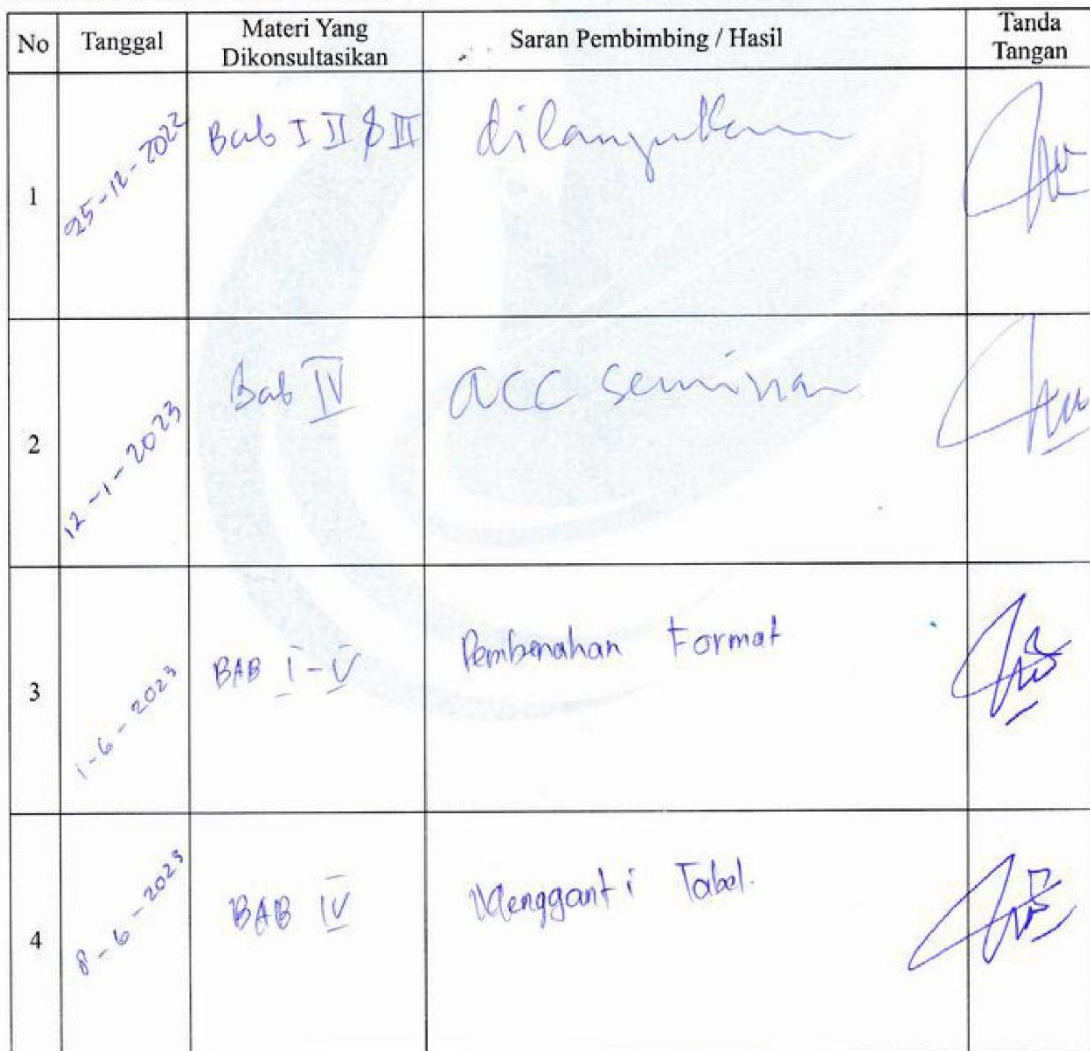 No Tanggal Materi Yang Dikonsultasikan Saran Pembimbing / Hasil Tanda Tangan
1 25-12-2022 Bab I II & III dilanjutkan
2 12-1-2023 Bab IV acc seminar
3 1-6-2023 BAB I-V Pembenahan Format
4 8-6-2023 BAB IV Mengganti Tabel.